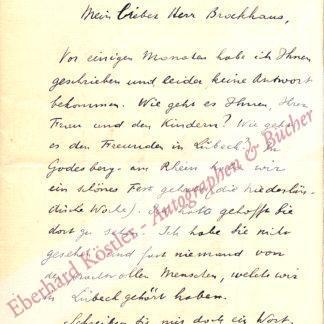 Mein lieber Herr Brockhaus,
Vor einigen Monaten habe ich Ihnen
geschrieben und leider keine Antwort
bekommen. Wie geht es Ihnen, Ihrer
Frau und den Kindern? Wie geht
es den Freunden in Lübeck? In
Godesberg am Rhein haben wir
ein schönes Fest gehabt (die niederlän-
dische Woche). Ich hatte gehofft Sie
dort zu sehen. Ich habe Sie nicht
gesehen und fast niemand von
den Menschen, welche wir
in Lübeck gehört haben.
Schreiben Sie mir doch ein Wort.
Eberhard Köstler - Autographen & Bücher